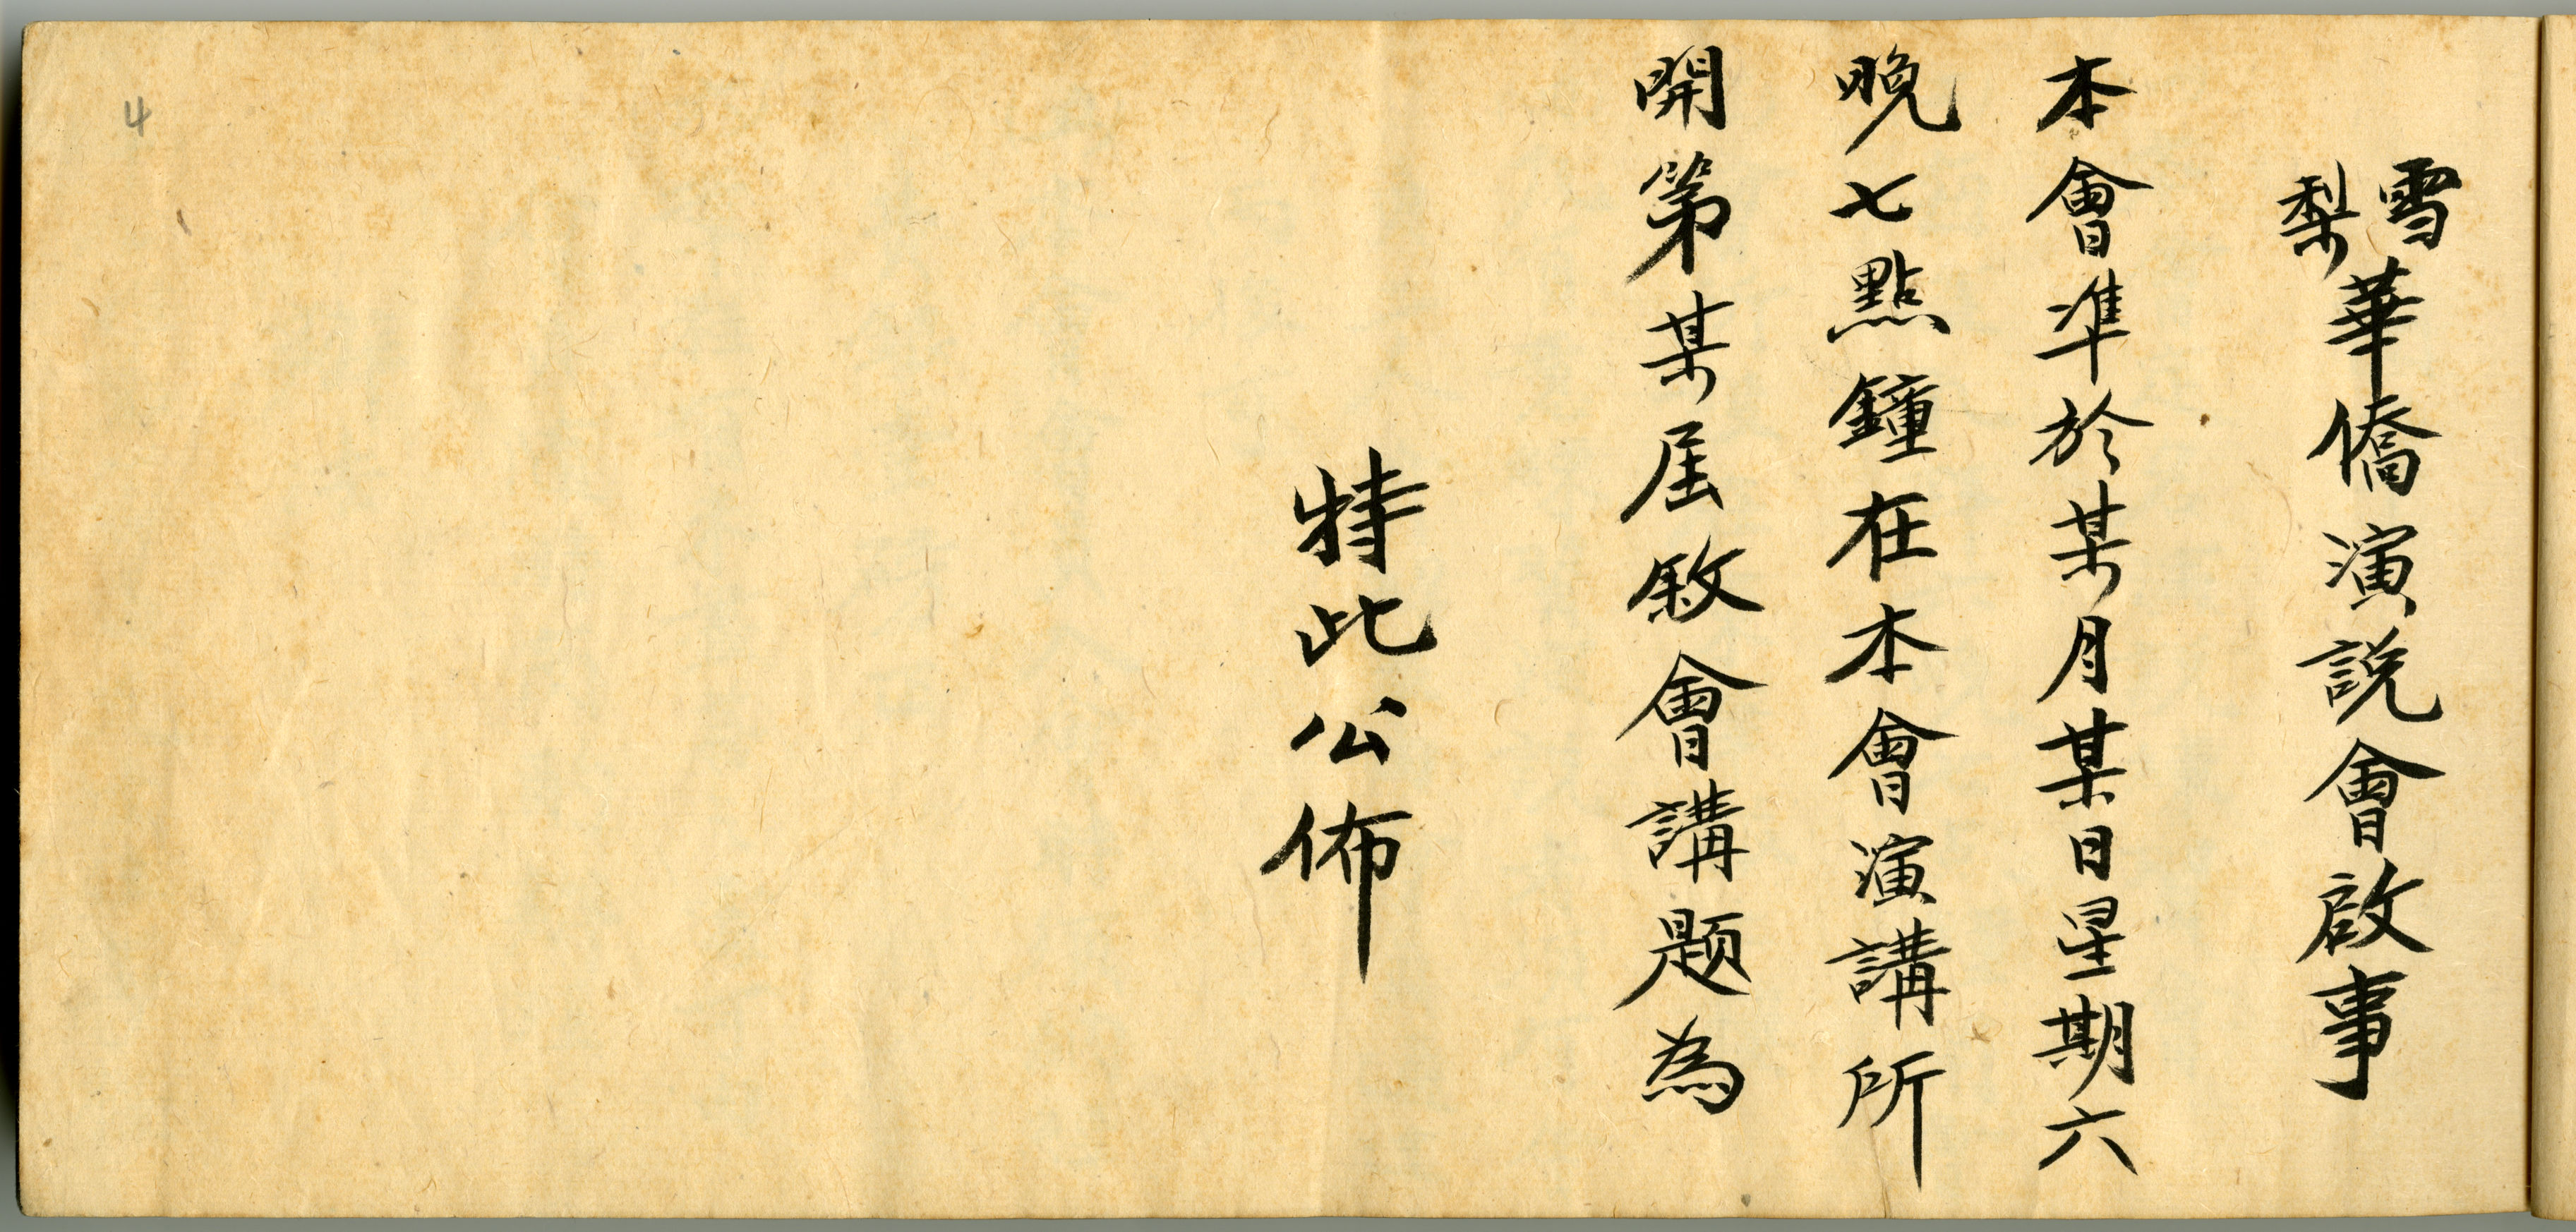 雪梨華僑演説會啟事
本會準於某月某日星期六
晚七點鐘在本會演講所
開第某屆敘會講題為
特此公佈
4